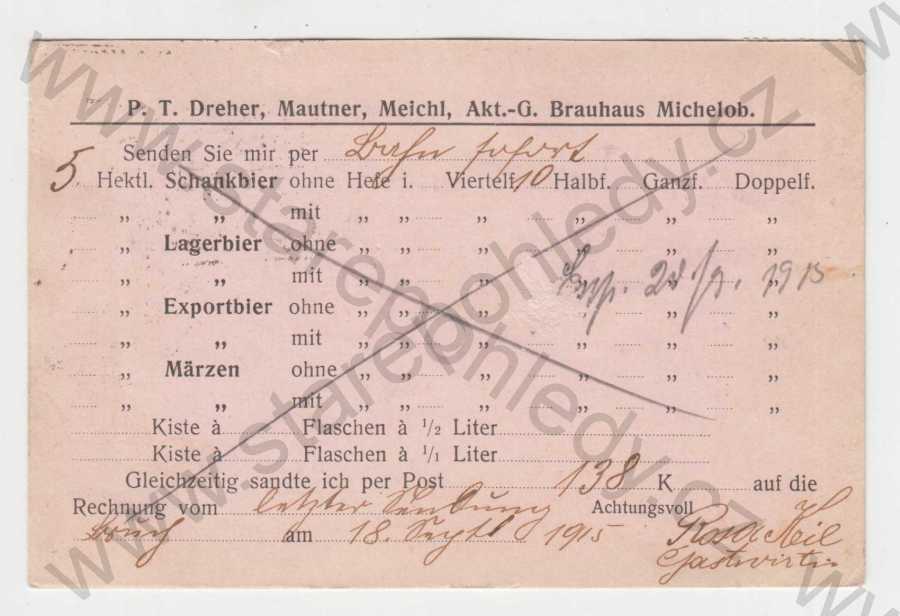 P. T. Dreher, Mautner, Meichl, Akt.-G. Brauhaus Michelob.
Senden Sie mir per Bahn sofort
5 Hektl. Schankbier ohne Hefe i. Viertelf. 10 Halbf. Ganzf. Doppelf.
„ „ mit „ „ „ „ „ „
„ Lagerbier ohne „ „ „ „ „ „
„ „ mit „ „ „ „ „ „
28/9. 1915
„ Exportbier ohne „ „ „ „ „ „
„ „ mit „ „ „ „ „ „
„ Märzen ohne „ „ „ „ „ „
„ „ mit „ „ „ „ „ „
Kiste à Flaschen à 1/2 Liter
Kiste à Flaschen à 1/1 Liter
Gleichzeitig sandte ich per Post 138 K auf die
Rechnung vom letzter Sendung Achtungsvoll
am 18. Septb 1915 Rosa Keil
Gastwirtin
www.starepohledy.cz